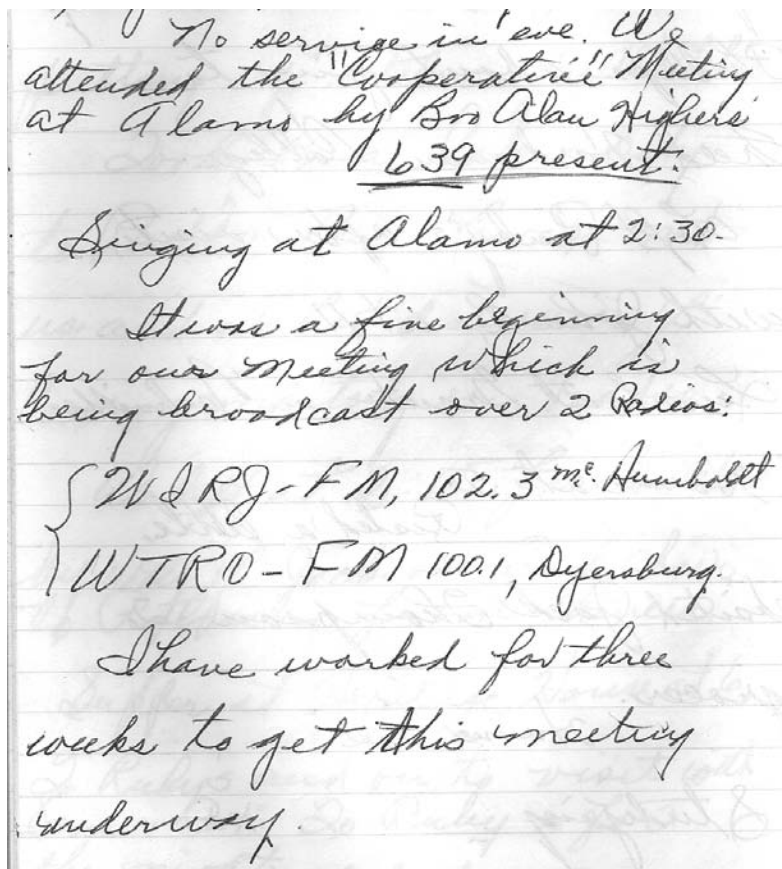 No service in eve. We
attended the "Cooperative" Meeting
at Alamo by Bro Alan Highers
639 present.
Singing at Alamo at 2:30.
It was a fine beginning
for our meeting which is
being broadcast over 2 Radios:
WIRJ-FM, 102.3 mc. Humboldt
WTRO-FM 100.1, Dyersburg.
I have worked for three
weeks to get this meeting
underway.